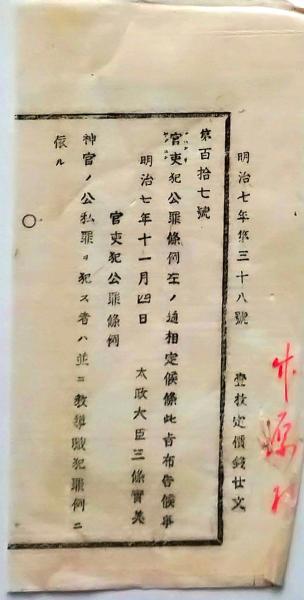 明治七年第三十八號　壹枚定價錢廿文
第百拾七號
官吏犯公罪條例左ノ通相定候條此旨布告候事
明治七年十一月四日　太政大臣三條實美
官吏犯公罪條例
神官ノ公私罪ヲ犯ス者ハ並ニ教導職犯罪例ニ
依ル
○